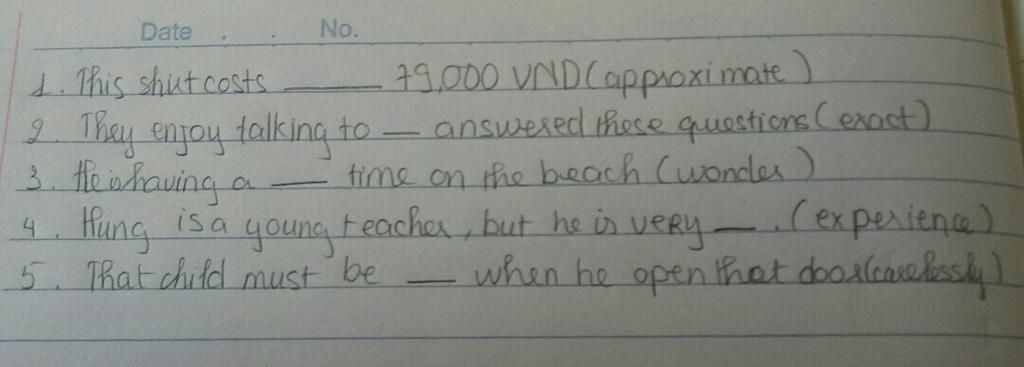 Date . . No.
1. This shirt costs ____ 79,000 VND (approximate)
2. They enjoy talking to __ answered these questions (exact)
3. He is having a __ time on the beach (wonder)
4. Hung is a young teacher, but he is very __. (experience)
5. That child must be __ when he open that door (carelessly)